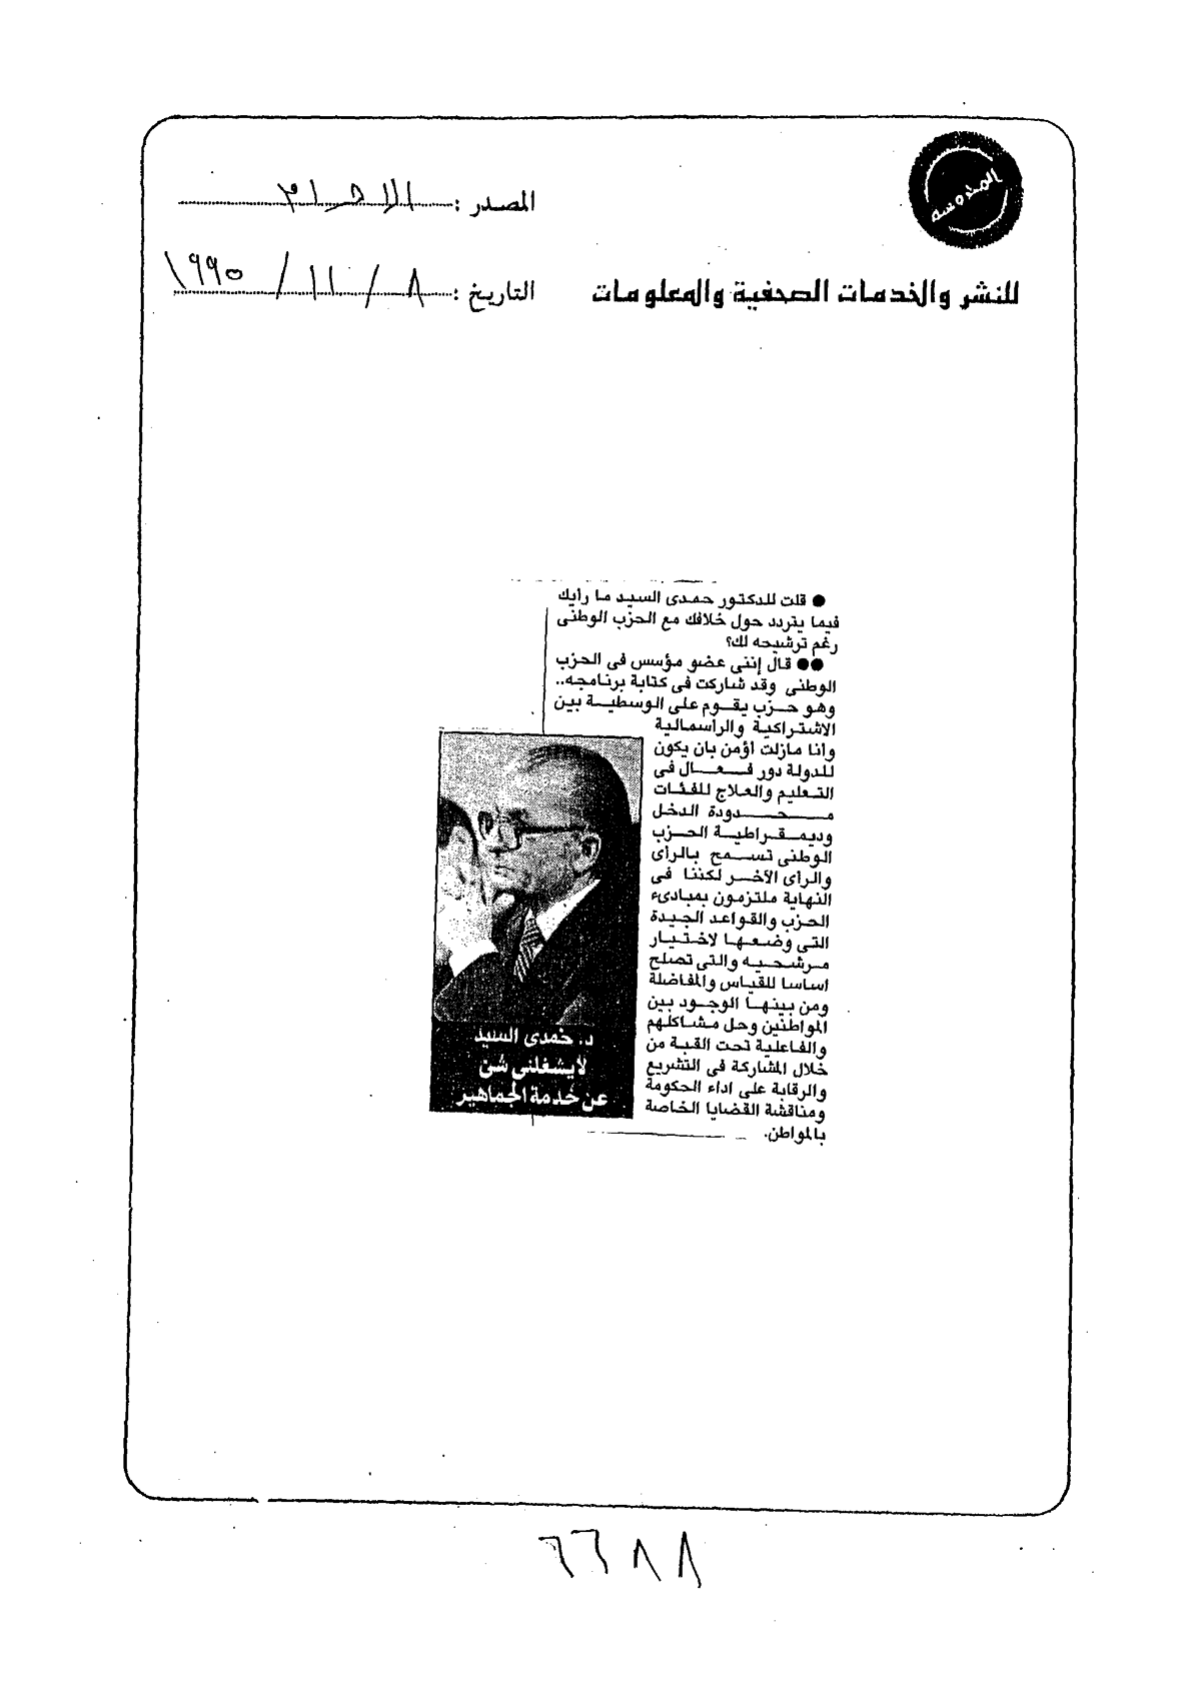 المحروسة
المصدر : الاهرام
للنشر والخدمات الصحفية والمعلومات
التاريخ : ٨ / ١١ / ١٩٩٥
● قلت للدكتور حمدى السيد ما رايك
فيما يتردد حول خلافك مع الحزب الوطنى
رغم ترشيحه لك؟
●● قال إننى عضو مؤسس فى الحزب
الوطنى وقد شاركت فى كتابة برنامجه..
وهو حزب يقوم على الوسطية بين
الاشتراكية والراسمالية
وانا مازلت أؤمن بان يكون
للدولة دور فعال فى
التعليم والعلاج للفئات
محدودة الدخل
وديمقراطية الحزب
الوطنى تسمح بالراى
والراى الآخر لكننا فى
النهاية ملتزمون بمبادىء
الحزب والقواعد الجيدة
التى وضعها لاختيار
مرشحيه والتى تصلح
اساسا للقياس والمفاضلة
ومن بينها الوجود بين
المواطنين وحل مشاكلهم
والفاعلية تحت القبة من
خلال المشاركة فى التشريع
والرقابة على اداء الحكومة
ومناقشة القضايا الخاصة
بالمواطن.
د. حمدى السيد
لايشغلنى شئ
عن خدمة الجماهير
٦٦٨٨